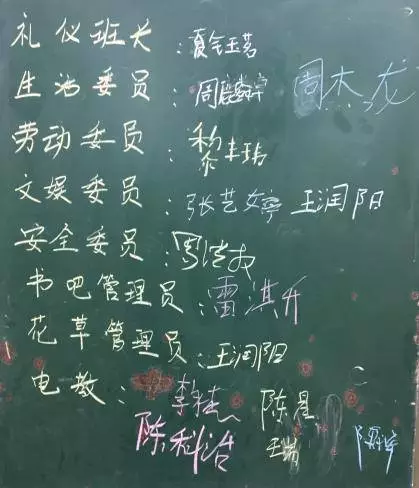 礼仪班长:夏钰茗
生活委员:周 周杰龙
劳动委员:黎
文娱委员:张艺婷 王润阳
安全委员:罗
书吧管理员:雷淇升
花草管理员:王润阳
电教: 李 陈星
陈科洁 王 陈